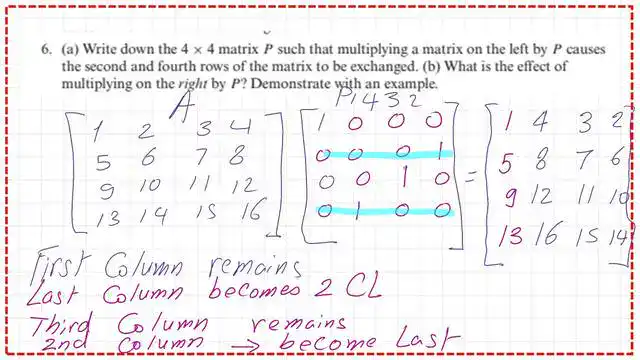 6. (a) Write down the 4 × 4 matrix P such that multiplying a matrix on the left by P causes
the second and fourth rows of the matrix to be exchanged. (b) What is the effect of
multiplying on the right by P? Demonstrate with an example.
A P1432
1 2 3 4 1 0 0 0 1 4 3 2
5 6 7 8 0 0 0 1 = 5 8 7 6
9 10 11 12 0 0 1 0 9 12 11 10
13 14 15 16 0 1 0 0 13 16 15 14
First Column remains
Last Column becomes 2 CL
Third Column remains
2nd Column → become Last